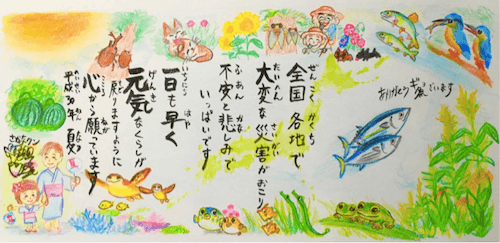 ありがとう
ざいます
ぜんこく かくち
全国各地で
たいへん さいがい
大変な災害がおこり
ふあん かな
不安と悲しみで
いっぱいです
いちにち はや
一日も早く
げんき
元気なくらしが
もど
戻りますように
こころ ねが
心から願ってます
へいせい ねん なつ
平成30年 夏
さかなクン